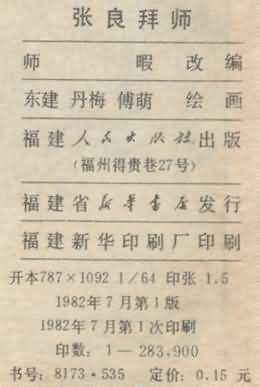 张良拜师
师 暇 改编
东建 丹梅 傅萌 绘画
福建人民出版社出版
(福州得贵巷27号)
福建省新华书店发行
福建新华印刷厂印刷
开本787×1092 1/64 印张 1.5
1982年7月第1版
1982年7月第1次印刷
印数: 1—283,900
书号: 8173·535 定价: 0.15 元